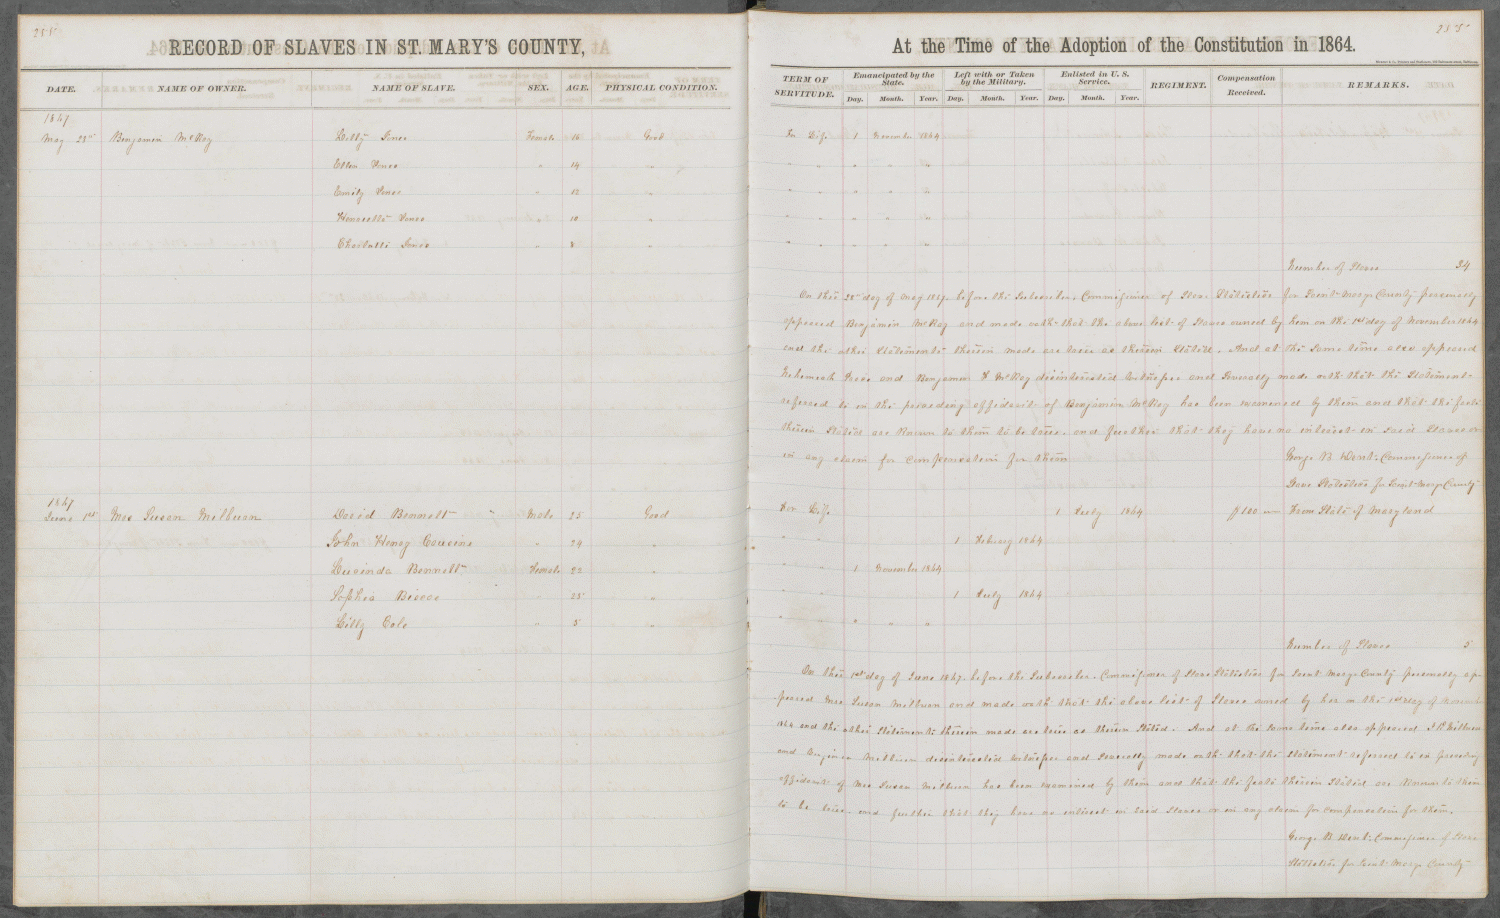 255
RECORD OF SLAVES IN ST. MARY'S COUNTY,
DATE. NAME OF OWNER. NAME OF SLAVE. SEX. AGE. PHYSICAL CONDITION.
1867
May 28th Benjamin McKay Jones Female 16 Good
Ellen Jones " 14 "
Emily Jones " 12 "
Henrietta Jones " 10 "
Jones " 8 "
1867
June 1st Mrs Susan Milburn David Bennett Male 25 Good
John Henry " 24 "
Lucinda Bennett Female 22 "
Sophia Biscoe " 25 "
" 5 "
255
At the Time of the Adoption of the Constitution in 1864.
TERM OF SERVITUDE. Emancipated by the State. Left with or Taken by the Military. Enlisted in U. S. Service. REGIMENT. Compensation Received. REMARKS.
Day. Month. Year. Day. Month. Year. Day. Month. Year.
For Life 1 November 1864
" " " " "
" " " " "
" " " " "
" " " " "
Number of Slaves 34
On this 28th day of May 1867, before the Subscriber, Commissioner of Slave Statistics for Saint Marys County personally
appeared Benjamin McKay and made oath that the above list of Slaves owned by him on the 1st day of November 1864
and the other Statements therein made are true as therein Stated. And at the Same time also appeared
and Benjamin McKay disinterested witnesses and Severally made oath that the Statement
referred to in the preceding affidavit of Benjamin McKay has been examined by them and that the facts
therein Stated are Known to them to be true, and further that they have no interest in said Slaves or
in any claim for compensation for them
George B Dent, Commissioner of
Slave Statistics for Saint Marys County
For Life 1 July 1864 $100 From State of Maryland
" " 1 February 1864
" " 1 November 1864
" " 1 July 1864
" " " " "
Number of Slaves 5
On this 1st day of June 1867, before the Subscriber, Commissioner of Slave Statistics for Saint Marys County personally ap-
peared Mrs Susan Milburn and made oath that the above list of Slaves owned by her on the 1st day of November
1864 and the other Statements therein made are true as therein Stated. And at the Same time also appeared Milburn
and Benjamin Milburn disinterested witnesses and Severally made oath that the Statement referred to in preceding
affidavit of Mrs Susan Milburn has been examined by them and that the facts therein Stated are Known to them
to be true, and further that they have no interest in said Slaves or in any claim for compensation for them.
George B Dent, Commissioner of Slave
Statistics for Saint Marys County